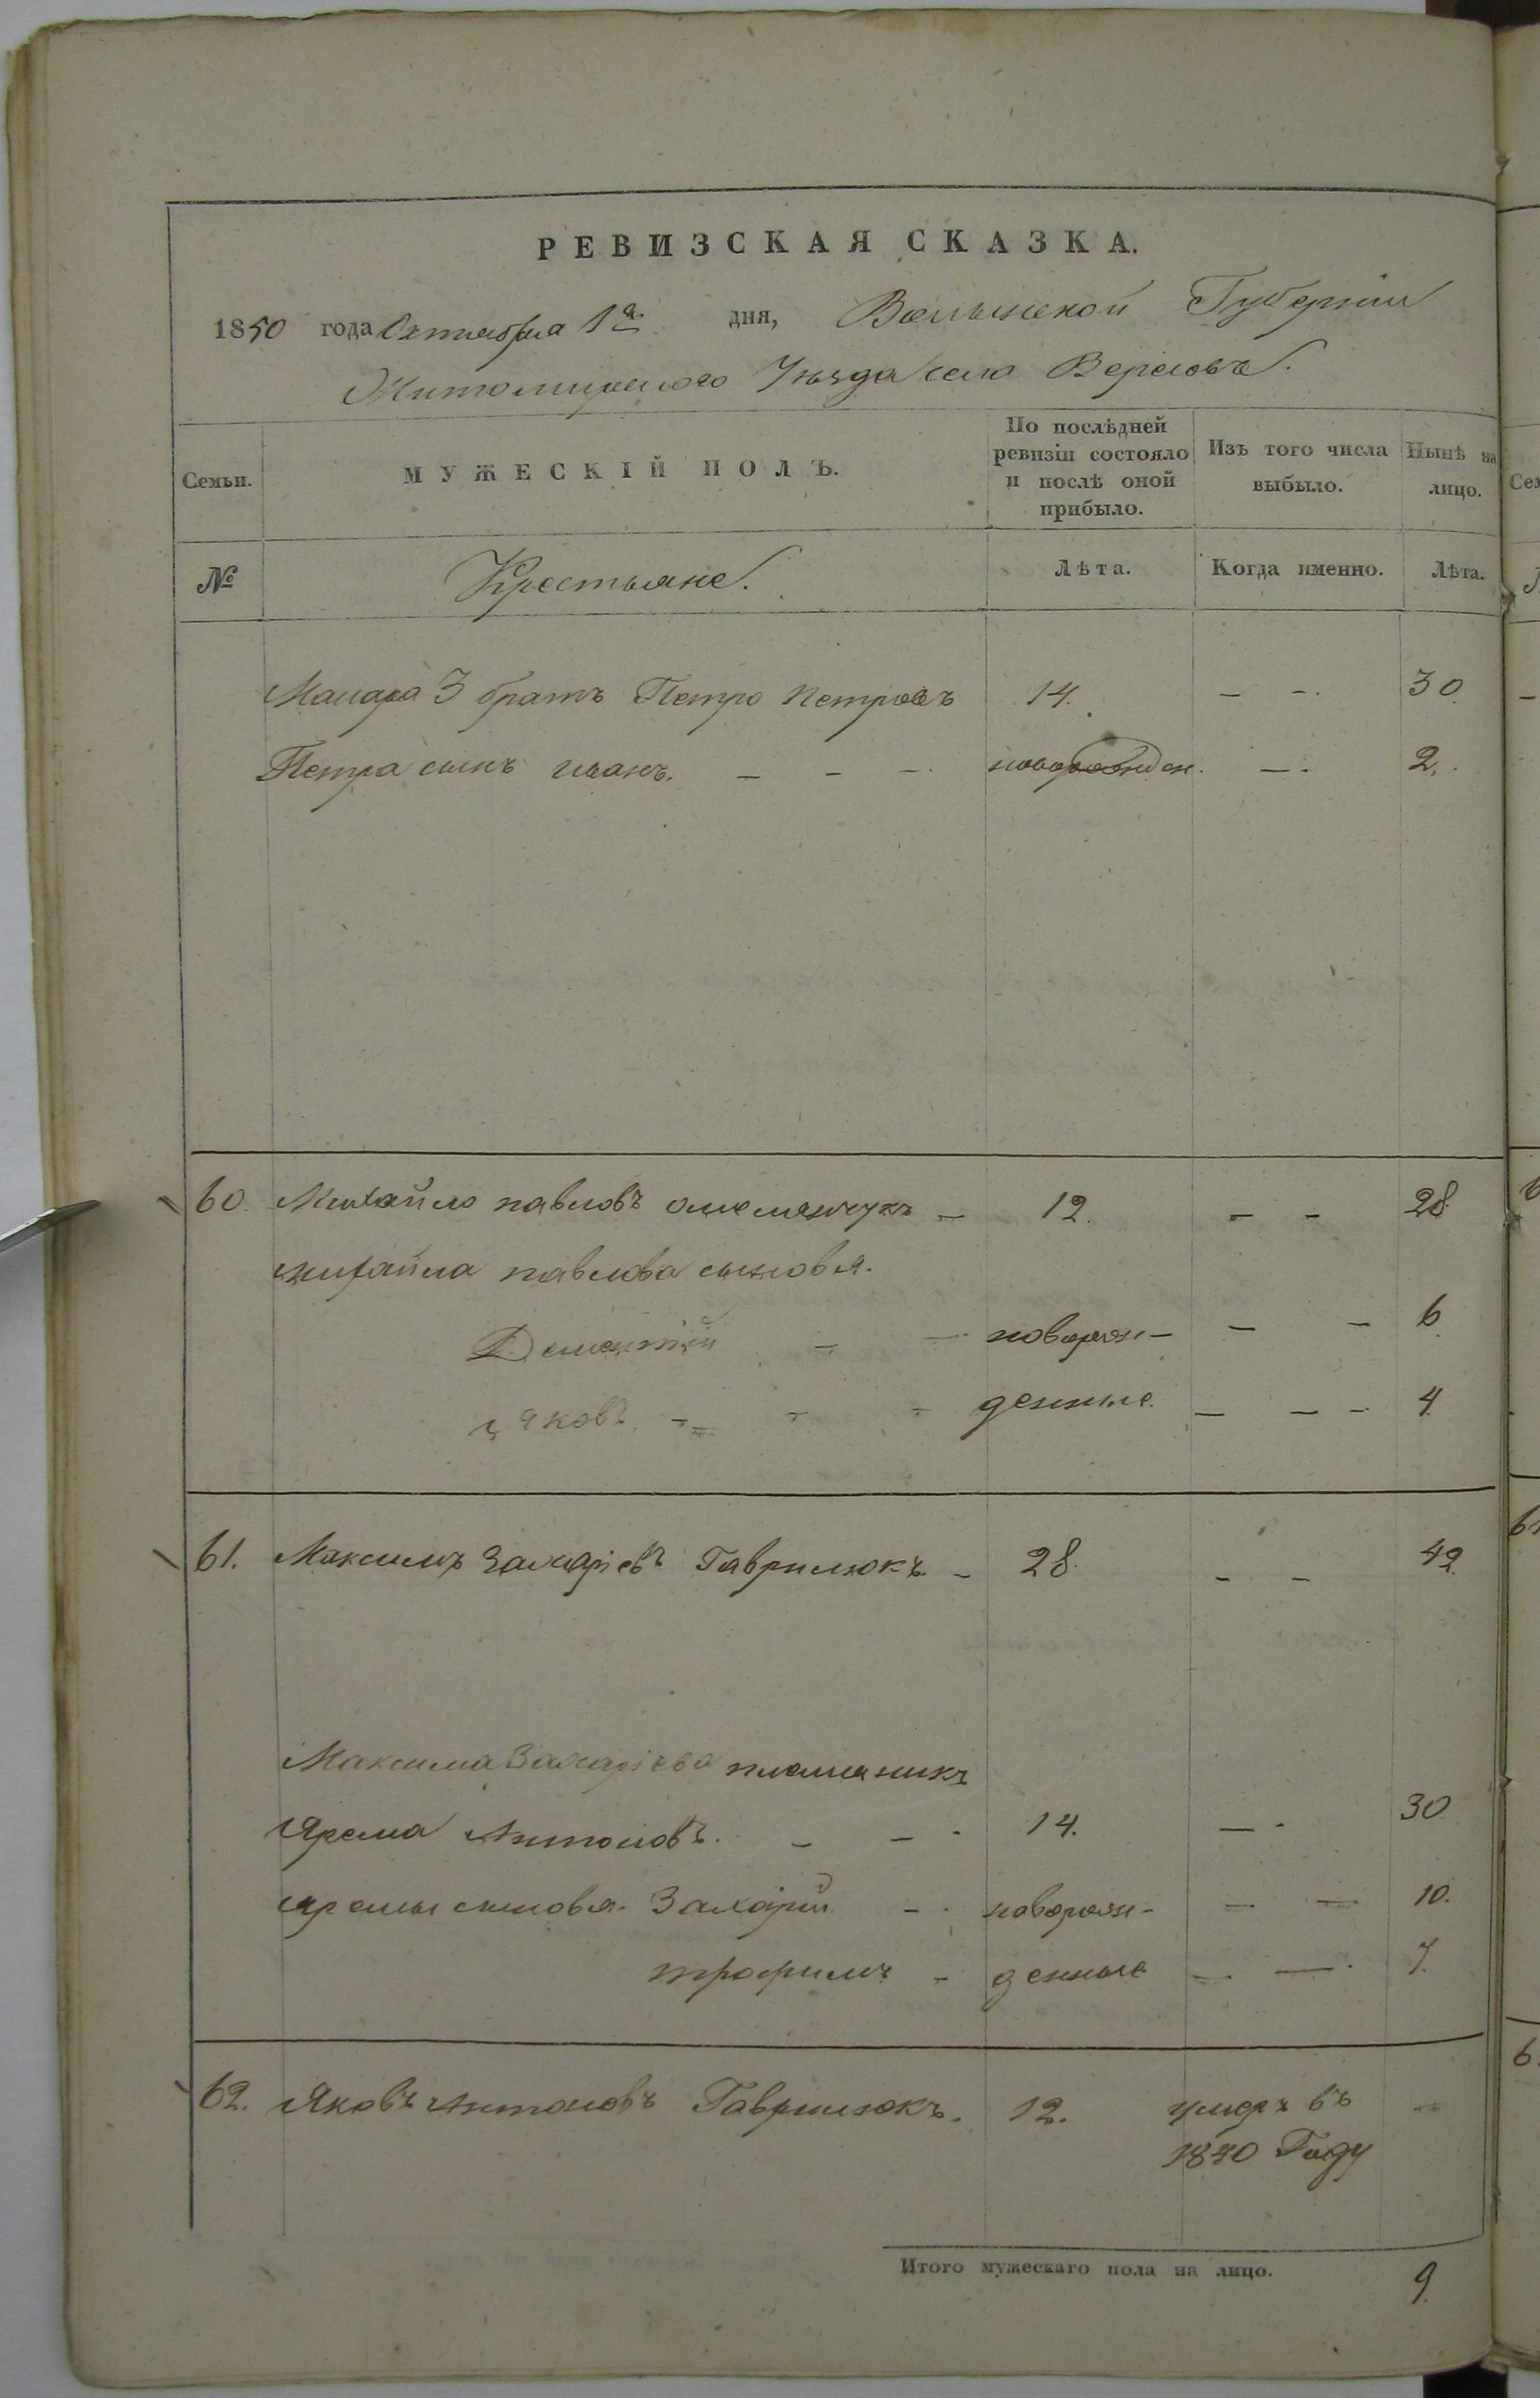 РЕВИЗСКАЯ СКАЗКА.
1850 года Октября 1го дня, Волынской Губерніи
Житомирскаго Уѣзда село Вересовъ.
Семьи. МУЖЕСКІЙ ПОЛЪ. По послѣдней ревизіи состояло и послѣ оной прибыло. Изъ того числа выбыло. Нынѣ на лицо.
№ Крестьяне. Лѣта. Когда именно. Лѣта.
Макара 3 братъ Петро Петровъ 14. — — 30
Петра сынъ иванъ. — — — новорожден. — 2.
60. Михайло павловъ — 12. — — 28
михайла павлова сыновья.
Дементій — — новорож- — — 6
яковъ — — — денные. — — — 4
61. Максимъ Захаріевъ Гаврилюкъ — 28 — — 42
Максима Захаріева племяникъ
Ярема Антоновъ. — — 14. — 30
яремы сыновья. Захарій — новорож- — — 10.
трофимъ — денные — — 7.
62. Яковъ Антоновъ Гаврилюкъ. 12. умеръ въ —
1840 Году
Итого мужескаго пола на лицо. 9